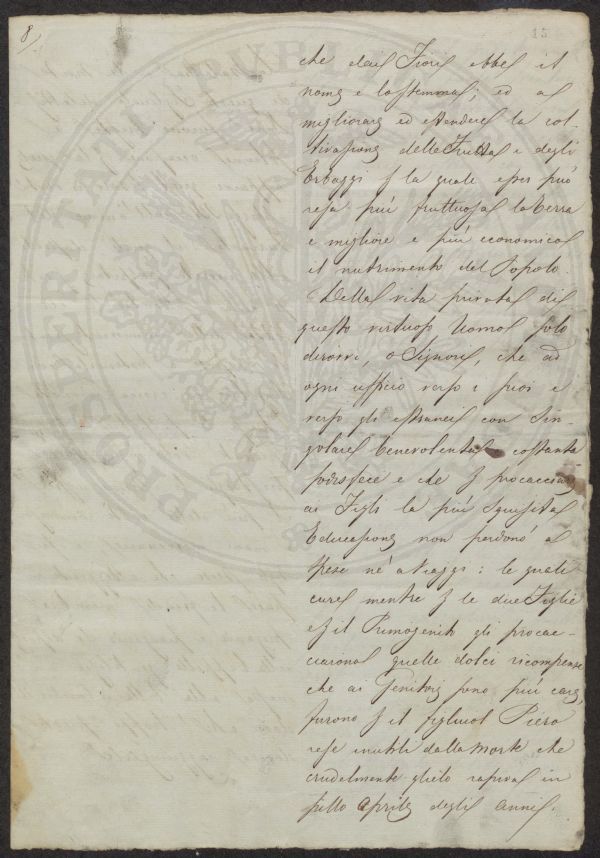 8)
15
che dai Fiori ebbe il
nome e lo stemma; ed a
migliorare ed estendere la col-
tivazione delle Frutta e degli
Erbaggi p la quale esser può
resa più fruttuosa la terra
e migliore e più economico
il nutrimento del Popolo.
Della vita privata di
questo virtuoso Uomo solo
dirovvi, o Signori, che ad
ogni ufficio verso i suoi e
verso gli estranei con sin-
golare benevolenza costante
sodisfece e che p procacciare
ai Figli la più squisita
Educazione non perdonò a
spese nè a viaggi: le quali
cure mentre p le due Figlie
e p il Primogenito gli procac-
ciarono quelle dolci ricompense
che ai Genitori sono più care,
furono p il figliuol Piero
rese inutili dalla morte che
crudelmente glielo rapiva in
sullo aprile degli anni.
PROSPERITATI PUBLICAE